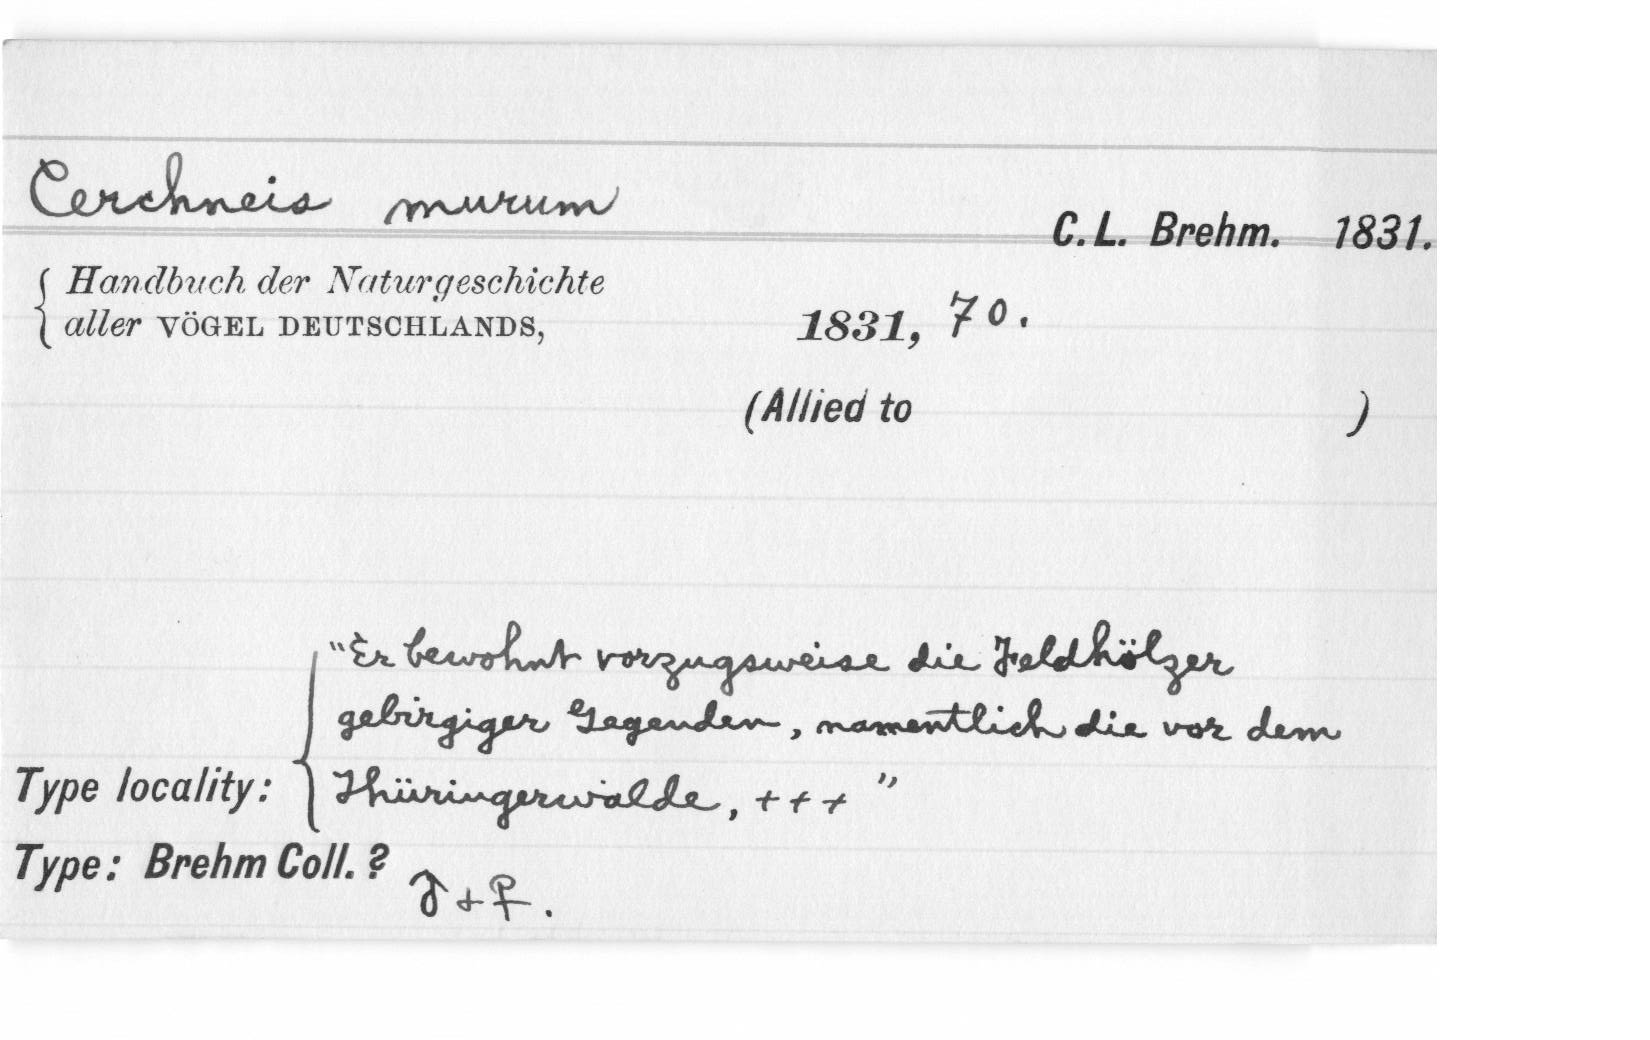 Cerchneis murum
C.L. Brehm. 1831.
Handbuch der Naturgeschichte
aller VÖGEL DEUTSCHLANDS,
1831, 70.
(Allied to )
"Er bewohnt vorzugsweise die Feldhölzer
gebirgiger Gegenden, namentlich die vor dem
Type locality: Thüringerwalde, +++ "
Type: Brehm Coll. ? ♂ + ♀.